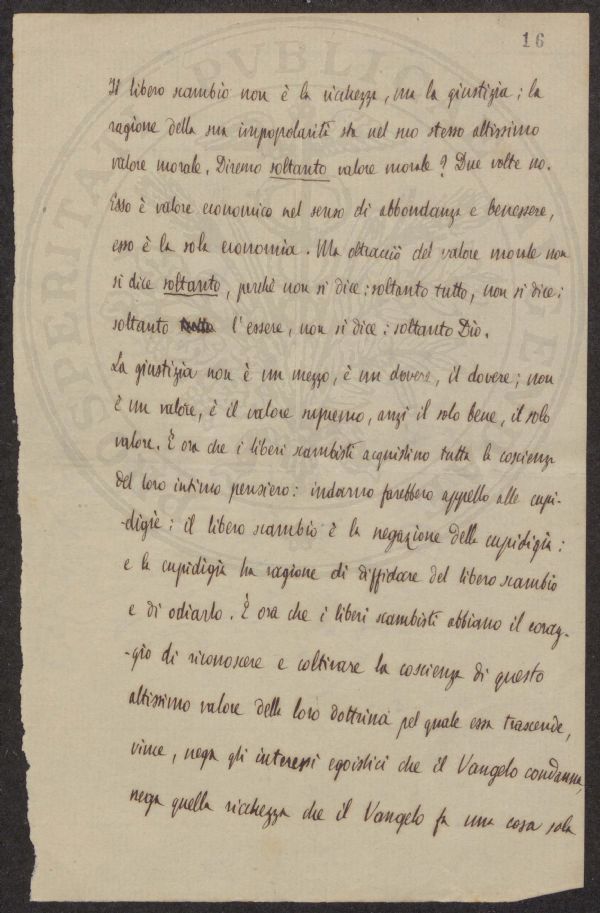 16
Il libero scambio non è la ricchezza, ma la giustizia; la
ragione della sua impopolarità sta nel suo stesso altissimo
valore morale. Diremo soltanto valore morale? Due volte no.
Esso è valore economico nel senso di abbondanza e benessere,
esso è la sola economia. Ma oltracciò del valore morale non
si dice soltanto, perché non si dice: soltanto tutto, non si dice:
soltanto l'essere, non si dice: soltanto Dio.
La giustizia non è un mezzo, è un dovere, il dovere; non
è un valore, è il valore supremo, anzi il solo bene, il solo
valore. È ora che i liberi scambisti acquistino tutta la coscienza
del loro intimo pensiero: indarno farebbero appello alle cupi-
-digie: il libero scambio è la negazione della cupidigia:
e la cupidigia ha ragione di diffidare del libero scambio
e di odiarlo. È ora che i liberi scambisti abbiano il corag-
-gio di riconoscere e coltivare la coscienza di questo
altissimo valore della loro dottrina pel quale essa trascende,
vince, nega gli interessi egoistici che il Vangelo condanna,
nega quella ricchezza che il Vangelo fa una cosa sola
PUBLIC